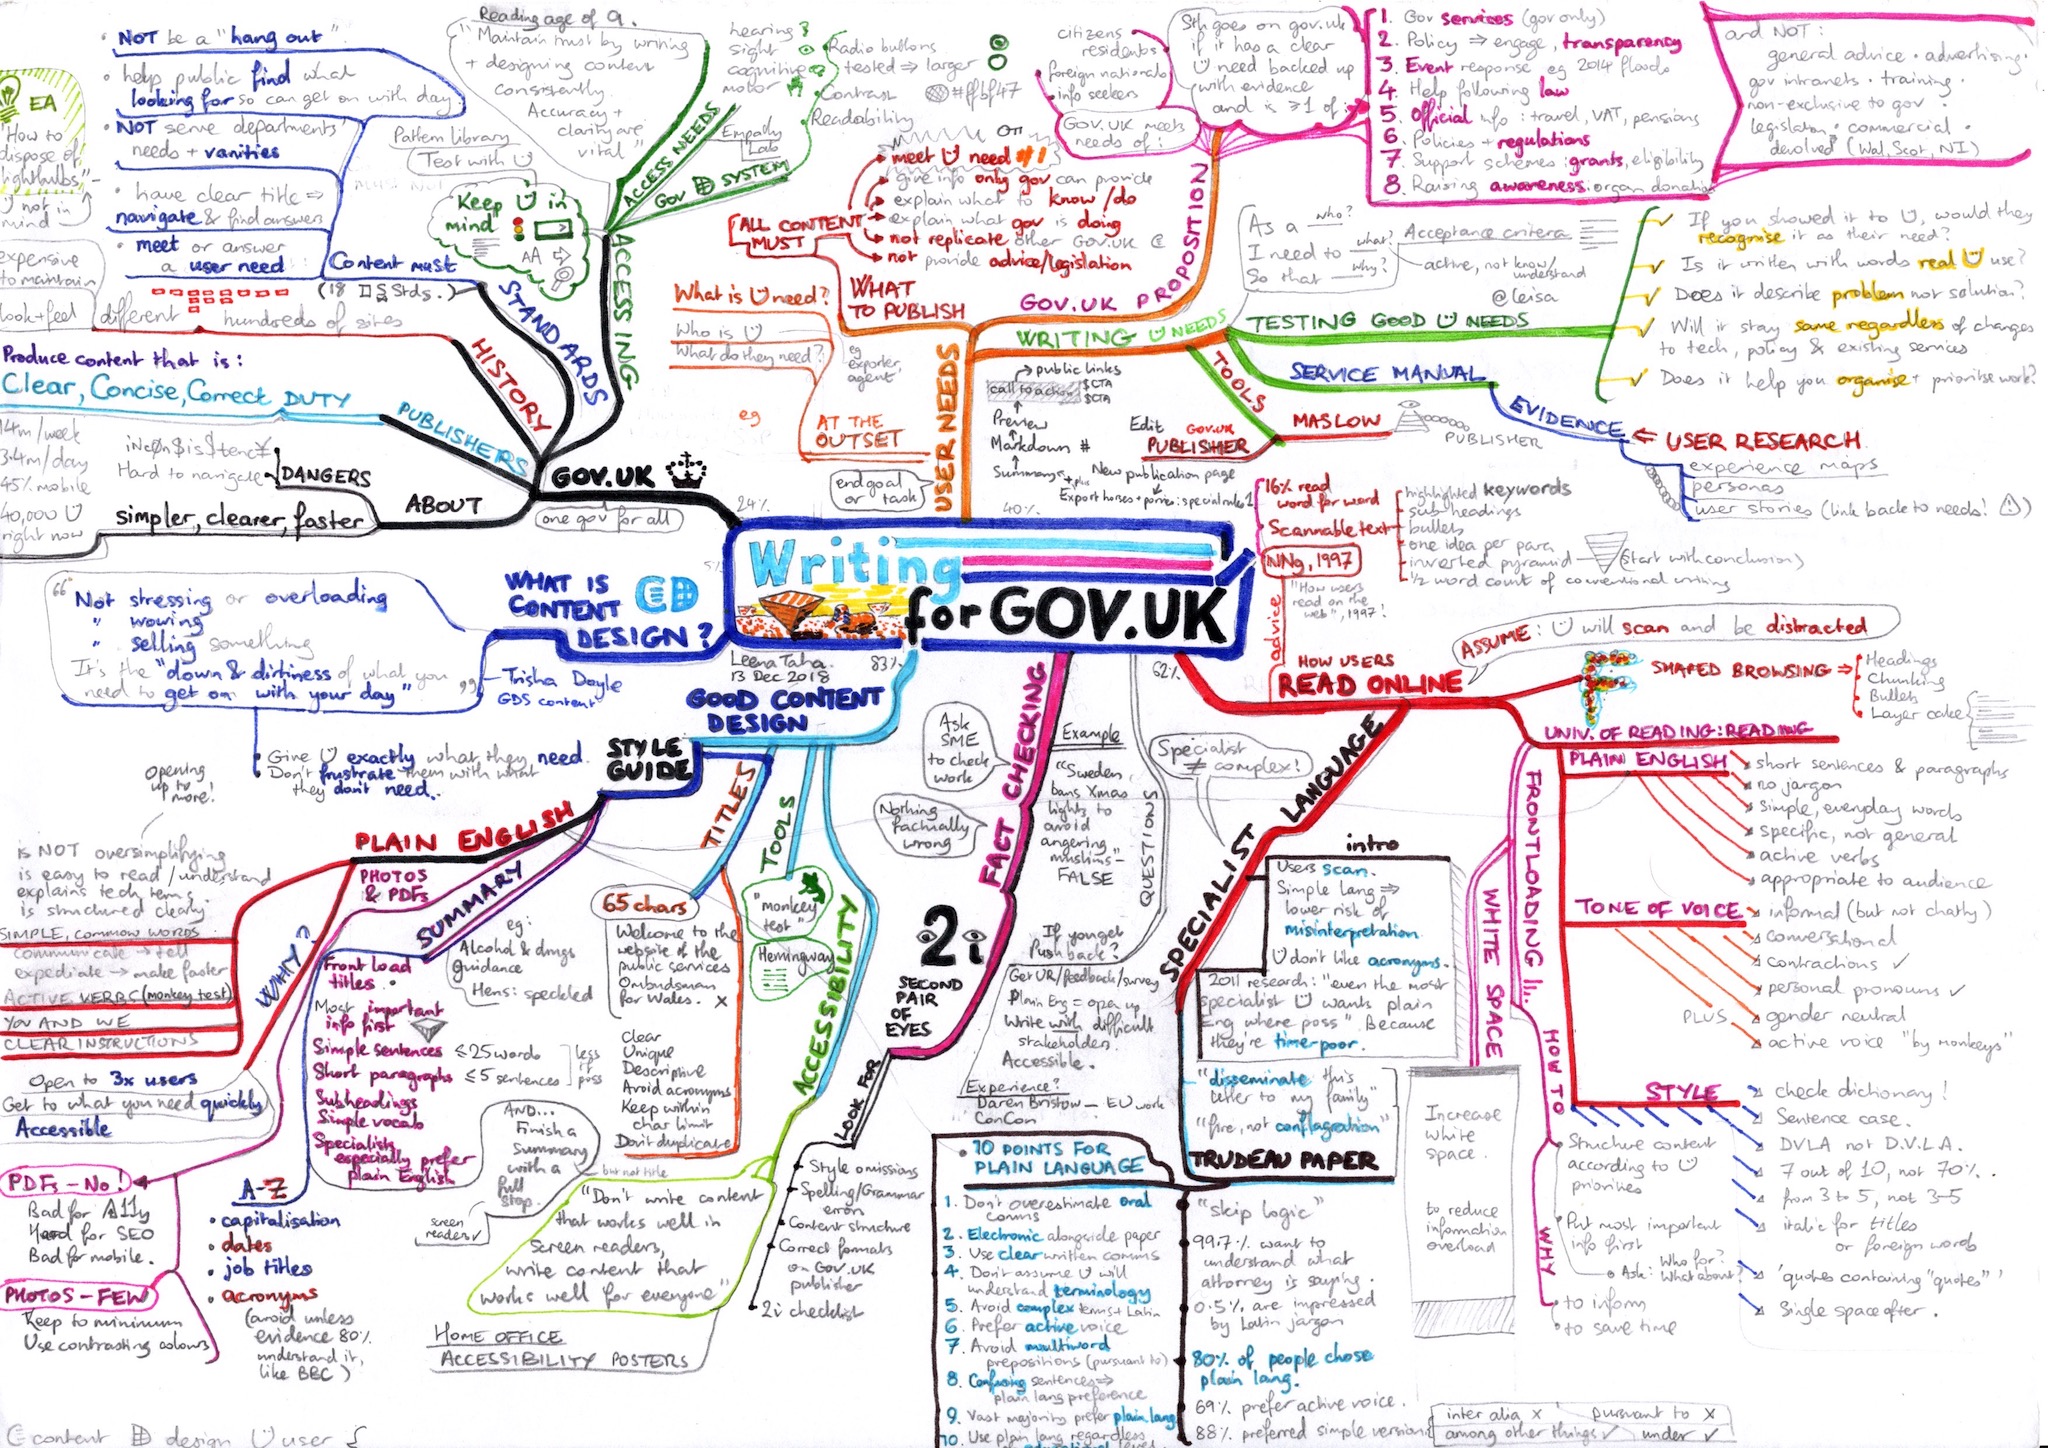 Writing
for GOV.UK
Leena Taha
13 Dec 2018
24%
40%
5%
83%
62%
GOV.UK
one gov for all
ABOUT
simpler, clearer, faster
DANGERS
iNc0n$i$tenc¥
Hard to navigate
14m/week
3.4m/day
45% mobile
40,000
right now
PUBLISHERS
DUTY
Produce content that is:
Clear, Concise, Correct
HISTORY
different
hundreds of sites
look+feel
expensive
to maintain
STANDARDS
Content must
(18 Stds.)
• NOT be a "hang out".
• help public find what
looking for so can get on with day.
• NOT serve departments'
needs + vanities
• have clear title ⇒
navigate & find answers
• meet or answer
a user need
EA
"How to
dispose of
lightbulbs"
not in
mind
ACCESSING
Keep in
mind
AA
Pattern Library
Test with
Reading age of 9.
"Maintain trust by writing
+ designing content
consistently.
Accuracy +
clarity are
vital"
ACCESS NEEDS
hearing
sight
cognitive
motor
GOV SYSTEM
Empathy
Lab
Radio buttons
tested ⇒ larger
Contrast #ffbf47
Readability
USER NEEDS
end goal
or task
WHAT
TO PUBLISH
ALL CONTENT
MUST
meet need #1
OR
give info only gov can provide
explain what to know/do
explain what gov is doing
not replicate other GOV.UK
not provide advice/legislation
AT THE
OUTSET
What is need?
Who is
What do they need?
eg
exporter,
agent
eg
GOV.UK PROPOSITION
GOV.UK meets
needs of:
citizens
residents
foreign nationals
info seekers
Sth goes on gov.uk
if it has a clear
need backed up
with evidence
and is ≥1 of:
1. Gov services (gov only)
2. Policy ⇒ engage, transparency
3. Event response eg 2014 floods
4. Help following law
5. Official info: travel, VAT, pensions
6. Policies + regulations
7. Support schemes: grants, eligibility
8. Raising awareness: organ donation
and NOT:
general advice • advertising •
gov intranets • training •
non-exclusive to gov •
legislation • commercial •
devolved (Wal, Scot, NI)
WRITING NEEDS
As a who?
I need to what?
So that why?
Acceptance criteria
active, not know/
understand
@leisa
TESTING GOOD NEEDS
If you showed it to , would they
recognise it as their need?
Is it written with words real use?
Does it describe problem not solution?
Will it stay same regardless of changes
to tech, policy & existing services
Does it help you organise + prioritise work?
SERVICE MANUAL
EVIDENCE
⇐ USER RESEARCH
experience maps
personas
user stories (link back to needs! )
TOOLS
MASLOW
PUBLISHER
Edit GOV.UK
PUBLISHER
New publication page
Export horses + ponies: special rules
Summary
Markdown #
Preview
call to action $CTA
$CTA
public links
HOW USERS
READ ONLINE
advice
NNg, 1997
"How users
read on the
web", 1997!
16% read
word for word
Scannable text
highlighted keywords
sub headings
bullets
one idea per para
inverted pyramid (start with conclusion)
1/2 word count of conventional writing
ASSUME: will scan and be distracted
F SHAPED BROWSING ⇒
Headings
Chunking
Bullets
Layer cake
UNIV. OF READING: READING
PLAIN ENGLISH
short sentences & paragraphs
no jargon
simple, everyday words
specific, not general
active verbs
appropriate to audience
TONE OF VOICE
informal (but not chatty)
conversational
contractions ✓
personal pronouns ✓
PLUS
gender neutral
active voice "by monkeys"
STYLE
check dictionary!
Sentence case.
DVLA not D.V.L.A.
7 out of 10, not 70%.
from 3 to 5, not 3-5
italic for titles
or foreign words
'quotes containing "quotes"'
Single space after.
FRONTLOADING
HOW TO
Structure content
according to
priorities
Put most important
info first
Ask: Who for?
What about?
WHY
to inform
to save time
WHITE SPACE
Increase
white
space
to reduce
information
overload
SPECIALIST LANGUAGE
Specialist
≠ complex!
intro
Users scan.
Simple lang ⇒
lower risk of
misinterpretation.
don't like acronyms.
2011 research: "even the most
specialist wants plain
Eng where poss" Because
they're time-poor.
"disseminate this
letter to my family"
"fire, not conflagration"
TRUDEAU PAPER
"skip logic"
99.7% want to
understand what
attorney is saying.
0.5% are impressed
by Latin jargon
80% of people chose
plain lang.
69% prefer active voice.
88% preferred simple version
inter alia x pursuant to x
among other things ✓ under ✓
10 POINTS FOR
PLAIN LANGUAGE
1. Don't overestimate oral
comms
2. Electronic alongside paper
3. Use clear written comms
4. Don't assume will
understand terminology
5. Avoid complex terms + Latin
6. Prefer active voice
7. Avoid multiword
prepositions (pursuant to)
8. Confusing sentences ⇒
plain lang preference
9. Vast majority prefer plain lang
10. Use plain lang regardless
QUESTIONS
If you get
Pushback?
Get UR/feedback/survey
Plain Eng = open up
Write with difficult
stakeholders.
Accessible.
Experience?
Daren Bristow — EU work
ConCon
FACT CHECKING
Ask
SME
to check
work
Nothing
factually
wrong
Example
"Sweden
bans Xmas
lights to
avoid
angering
muslims" -
FALSE
2i
SECOND
PAIR
OF
EYES
LOOK FOR
Style omissions
Spelling/Grammar
errors
Content structure
Correct formats
on GOV.UK
publisher
2i checklist
GOOD CONTENT
DESIGN
ACCESSIBILITY
"Don't write content
that works well in
screen readers,
write content that
works well for everyone"
HOME OFFICE
ACCESSIBILITY POSTERS
TOOLS
"monkey
test"
Hemingway
TITLES
65 chars
Welcome to the
website of the
public services
Ombudsman
for Wales. x
Clear
Unique
Descriptive
Avoid acronyms
Keep within
char limit
Don't duplicate
STYLE
GUIDE
SUMMARY
eg:
Alcohol & drugs
guidance
Hens: speckled
Front load
titles.
Most important
info first
Simple sentences ≤25 words
Short paragraphs ≤5 sentences
less
if
poss
Subheadings
Simple vocab
Specialists
especially prefer
plain English
AND...
Finish a
summary
with a
full
stop.
but not title
screen
readers ✓
A-Z
• capitalisation
• dates
• job titles
• acronyms
(avoid unless
evidence 80%
understand it,
like BBC)
PHOTOS
& PDFs
PDFs - No!
Bad for A11y
Hard for SEO
Bad for mobile.
PHOTOS - FEW
Keep to minimum
Use contrasting colours
PLAIN ENGLISH
Opening
up to
more!
is NOT oversimplifying
is easy to read/understand
explains tech terms.
is structured clearly
SIMPLE, COMMON WORDS
communicate → tell
expediate → make faster
ACTIVE VERBS (monkey test)
YOU AND WE
CLEAR INSTRUCTIONS
WHY?
Open to 3x users
Get to what you need quickly
Accessible
WHAT IS
CONTENT
DESIGN?
"Not stressing or overloading
" wowing
" selling something
It's the "down & dirtiness of what you
need to get on with your day"
- Trisha Doyle
GDS content
• Give exactly what they need.
• Don't frustrate them with what
they don't need.
content design user